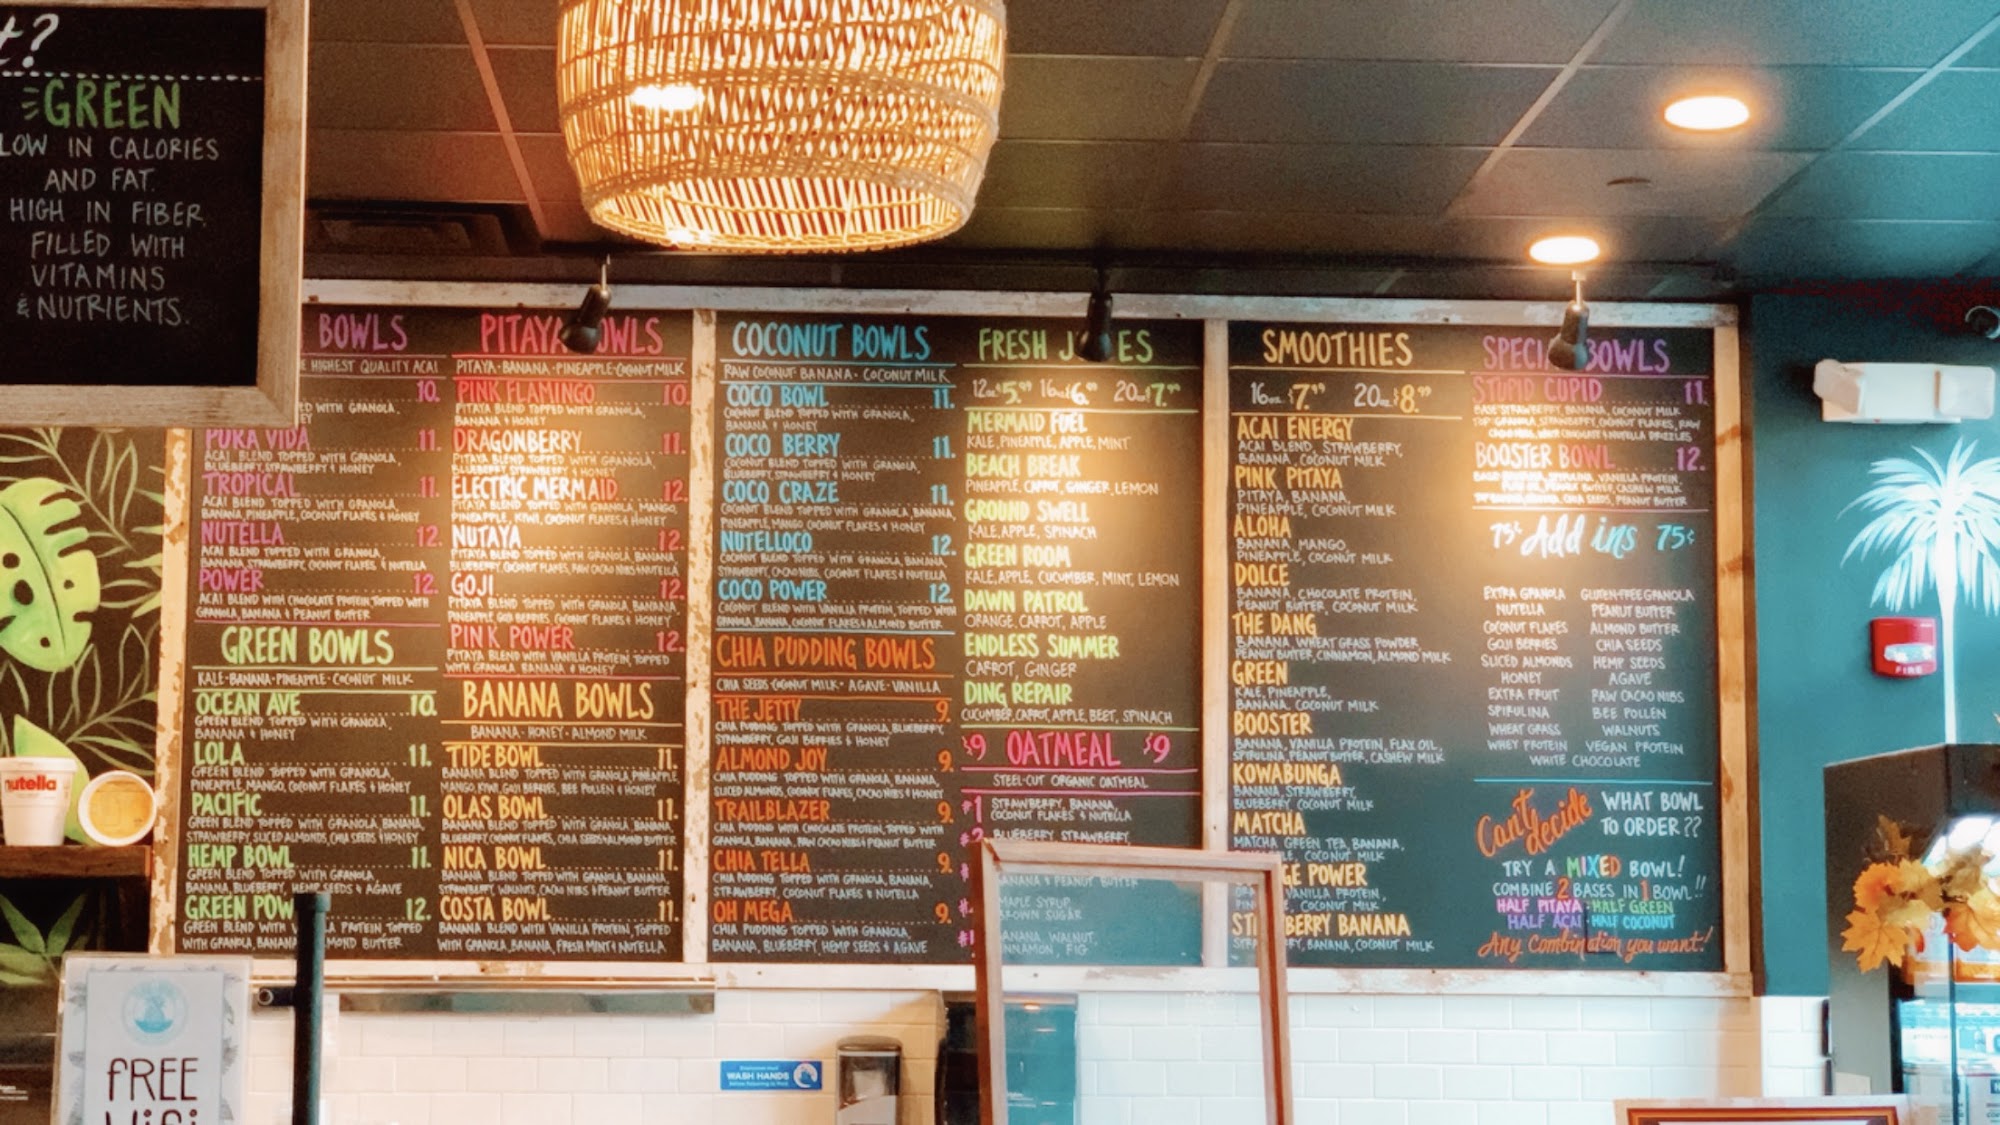 t?
GREEN
LOW IN CALORIES
AND FAT.
HIGH IN FIBER.
FILLED WITH
VITAMINS
& NUTRIENTS.
BOWLS
HIGHEST QUALITY ACAI
10.
WITH GRANOLA,
PURA VIDA 11.
ACAI BLEND TOPPED WITH GRANOLA,
BLUEBERRY, STRAWBERRY & HONEY
TROPICAL 11.
ACAI BLEND TOPPED WITH GRANOLA,
BANANA, PINEAPPLE, COCONUT FLAKES & HONEY
NUTELLA 12.
ACAI BLEND TOPPED WITH GRANOLA,
BANANA, STRAWBERRY, COCONUT FLAKES & NUTELLA
POWER 12.
ACAI BLEND WITH CHOCOLATE PROTEIN, TOPPED WITH
GRANOLA, BANANA & PEANUT BUTTER
GREEN BOWLS
KALE · BANANA · PINEAPPLE · COCONUT MILK
OCEAN AVE 10.
GREEN BLEND TOPPED WITH GRANOLA,
BANANA & HONEY
LOLA 11.
GREEN BLEND TOPPED WITH GRANOLA,
PINEAPPLE, MANGO, COCONUT FLAKES & HONEY
PACIFIC 11.
GREEN BLEND TOPPED WITH GRANOLA, BANANA,
STRAWBERRY, SLICED ALMONDS, CHIA SEEDS & HONEY
HEMP BOWL 11.
GREEN BLEND TOPPED WITH GRANOLA,
BANANA, BLUEBERRY, HEMP SEEDS & AGAVE
GREEN POW 12.
GREEN BLEND WITH PROTEIN, TOPPED
WITH GRANOLA, BANANA MOND BUTTER
PITAYA BOWLS
PITAYA · BANANA · PINEAPPLE · COCONUT MILK
PINK FLAMINGO 10.
PITAYA BLEND TOPPED WITH GRANOLA,
BANANA & HONEY
DRAGONBERRY 11.
PITAYA BLEND TOPPED WITH GRANOLA,
BLUEBERRY, STRAWBERRY & HONEY
ELECTRIC MERMAID 12.
PITAYA BLEND TOPPED WITH GRANOLA, MANGO,
PINEAPPLE, KIWI, COCONUT FLAKES & HONEY
NUTAYA 12.
PITAYA BLEND TOPPED WITH GRANOLA, BANANA
BLUEBERRY, COCONUT FLAKES, RAW CACAO NIBS & NUTELLA
GOJI 12.
PITAYA BLEND TOPPED WITH GRANOLA, BANANA,
PINEAPPLE, GOJI BERRIES, COCONUT FLAKES & HONEY
PINK POWER 12.
PITAYA BLEND WITH VANILLA PROTEIN, TOPPED
WITH GRANOLA, BANANA & HONEY
BANANA BOWLS
BANANA · HONEY · ALMOND MILK
TIDE BOWL 11.
BANANA BLEND TOPPED WITH GRANOLA, PINEAPPLE,
MANGO, KIWI, GOJI BERRIES, BEE POLLEN & HONEY
OLAS BOWL 11.
BANANA BLEND TOPPED WITH GRANOLA, BANANA,
BLUEBERRY, COCONUT FLAKES, CHIA SEEDS & ALMOND BUTTER
NICA BOWL 11.
BANANA BLEND TOPPED WITH GRANOLA, BANANA,
STRAWBERRY, WALNUTS, CACAO NIBS & PEANUT BUTTER
COSTA BOWL 11.
BANANA BLEND WITH VANILLA PROTEIN, TOPPED
WITH GRANOLA, BANANA, FRESH MINT & NUTELLA
COCONUT BOWLS
RAW COCONUT · BANANA · COCONUT MILK
COCO BOWL 11.
COCONUT BLEND TOPPED WITH GRANOLA,
BANANA & HONEY
COCO BERRY 11.
COCONUT BLEND TOPPED WITH GRANOLA,
BLUEBERRY, STRAWBERRY & HONEY
COCO CRAZE 11.
COCONUT BLEND TOPPED WITH GRANOLA, BANANA,
PINEAPPLE, MANGO, COCONUT FLAKES & HONEY
NUTELLOCO 12.
COCONUT BLEND TOPPED WITH GRANOLA, BANANA,
STRAWBERRY, CACAO NIBS, COCONUT FLAKES & NUTELLA
COCO POWER 12.
COCONUT BLEND WITH VANILLA PROTEIN, TOPPED WITH
GRANOLA, BANANA, COCONUT FLAKES & ALMOND BUTTER
CHIA PUDDING BOWLS
CHIA SEEDS · COCONUT MILK · AGAVE · VANILLA
THE JETTY 9.
CHIA PUDDING TOPPED WITH GRANOLA, BLUEBERRY,
STRAWBERRY, GOJI BERRIES & HONEY
ALMOND JOY 9.
CHIA PUDDING TOPPED WITH GRANOLA, BANANA,
SLICED ALMONDS, COCONUT FLAKES, CACAO NIBS & HONEY
TRAILBLAZER 9.
CHIA PUDDING WITH CHOCOLATE PROTEIN, TOPPED WITH
GRANOLA, BANANA, RAW CACAO NIBS & PEANUT BUTTER
CHIA TELLA 9.
CHIA PUDDING TOPPED WITH GRANOLA, BANANA,
STRAWBERRY, COCONUT FLAKES & NUTELLA
OH MEGA 9.
CHIA PUDDING TOPPED WITH GRANOLA,
BANANA, BLUEBERRY, HEMP SEEDS & AGAVE
FRESH J ES
12oz $5.99 16oz $6.99 20oz $7.99
MERMAID FUEL
KALE, PINEAPPLE, APPLE, MINT
BEACH BREAK
PINEAPPLE, CARROT, GINGER, LEMON
GROUND SWELL
KALE, APPLE, SPINACH
GREEN ROOM
KALE, APPLE, CUCUMBER, MINT, LEMON
DAWN PATROL
ORANGE, CARROT, APPLE
ENDLESS SUMMER
CARROT, GINGER
DING REPAIR
CUCUMBER, CARROT, APPLE, BEET, SPINACH
$9 OATMEAL $9
STEEL-CUT ORGANIC OATMEAL
#1 STRAWBERRY, BANANA,
COCONUT FLAKES & NUTELLA
BLUEBERRY, STRAWBERRY,
BANANA & PEANUT BUTTER
MAPLE SYRUP,
BROWN SUGAR
BANANA, WALNUT,
CINNAMON, FIG
SMOOTHIES
16oz $7.49 20oz $8.99
ACAI ENERGY
ACAI BLEND, STRAWBERRY,
BANANA, COCONUT MILK
PINK PITAYA
PITAYA, BANANA,
PINEAPPLE, COCONUT MILK
ALOHA
BANANA, MANGO,
PINEAPPLE, COCONUT MILK
DOLCE
BANANA, CHOCOLATE PROTEIN,
PEANUT BUTTER, COCONUT MILK
THE DANG
BANANA, WHEAT GRASS POWDER
PEANUT BUTTER, CINNAMON, ALMOND MILK
GREEN
KALE, PINEAPPLE,
BANANA, COCONUT MILK
BOOSTER
BANANA, VANILLA PROTEIN, FLAX OIL,
SPIRULINA, PEANUT BUTTER, CASHEW MILK
KOWABUNGA
BANANA, STRAWBERRY,
BLUEBERRY, COCONUT MILK
MATCHA
MATCHA GREEN TEA, BANANA,
LE, COCONUT MILK
GE POWER
VANILLA PROTEIN,
COCONUT MILK
ST BERRY BANANA
RY, BANANA, COCONUT MILK
SPECI BOWLS
STUPID CUPID 11.
BASE: STRAWBERRY, BANANA, COCONUT MILK
TOP: GRANOLA, STRAWBERRY, COCONUT FLAKES, RAW
CACAO NIBS, WHITE CHOCOLATE & NUTELLA DRIZZLES
BOOSTER BOWL 12.
BASE: BANANA, SPIRULINA, VANILLA PROTEIN,
PEANUT BUTTER, CASHEW MILK
CHIA SEEDS, PEANUT BUTTER
75¢ Add ins 75¢
EXTRA GRANOLA GLUTEN-FREE GRANOLA
NUTELLA PEANUT BUTTER
COCONUT FLAKES ALMOND BUTTER
GOJI BERRIES CHIA SEEDS
SLICED ALMONDS HEMP SEEDS
HONEY AGAVE
EXTRA FRUIT RAW CACAO NIBS
SPIRULINA BEE POLLEN
WHEAT GRASS WALNUTS
WHEY PROTEIN VEGAN PROTEIN
WHITE CHOCOLATE
Can't decide WHAT BOWL
TO ORDER??
TRY A MIXED BOWL!
COMBINE 2 BASES IN 1 BOWL!!
HALF PITAYA · HALF GREEN
HALF ACAI · HALF COCONUT
Any combination you want!
nutella
FIRE
FREE
WiFi
WASH HANDS